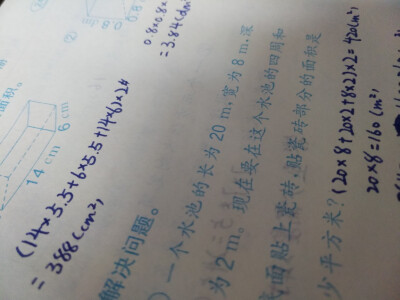 0.8×0.8×
=3.84(dm
14 cm
6 cm
(14×5.5+6×5.5+14×6)×2
=388(cm²)
解决问题。
一个水池的长为 20 m,宽为 8 m,深
为 2 m。现在要在这个水池的四周和
面贴上瓷砖,贴瓷砖部分的面积是
少平方米?
(20×8+20×2+8×2)×2=420(m²)
20×8=160(m²)